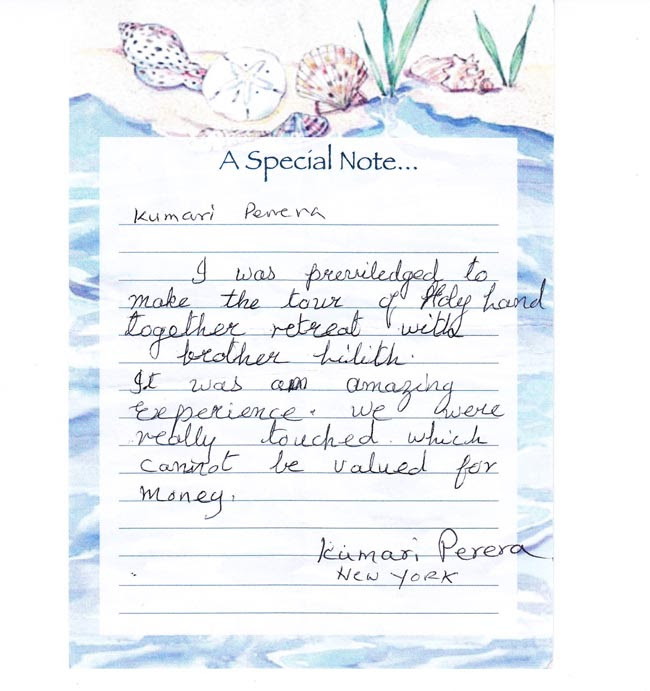 A Special Note...
Kumari Perera
I was previledged to
make the tour of Holy hand
together retreat with
brother Lilith.
It was an amazing
experience. we were
really touched which
cannot be valued for
money.
Kumari Perera
NEW YORK